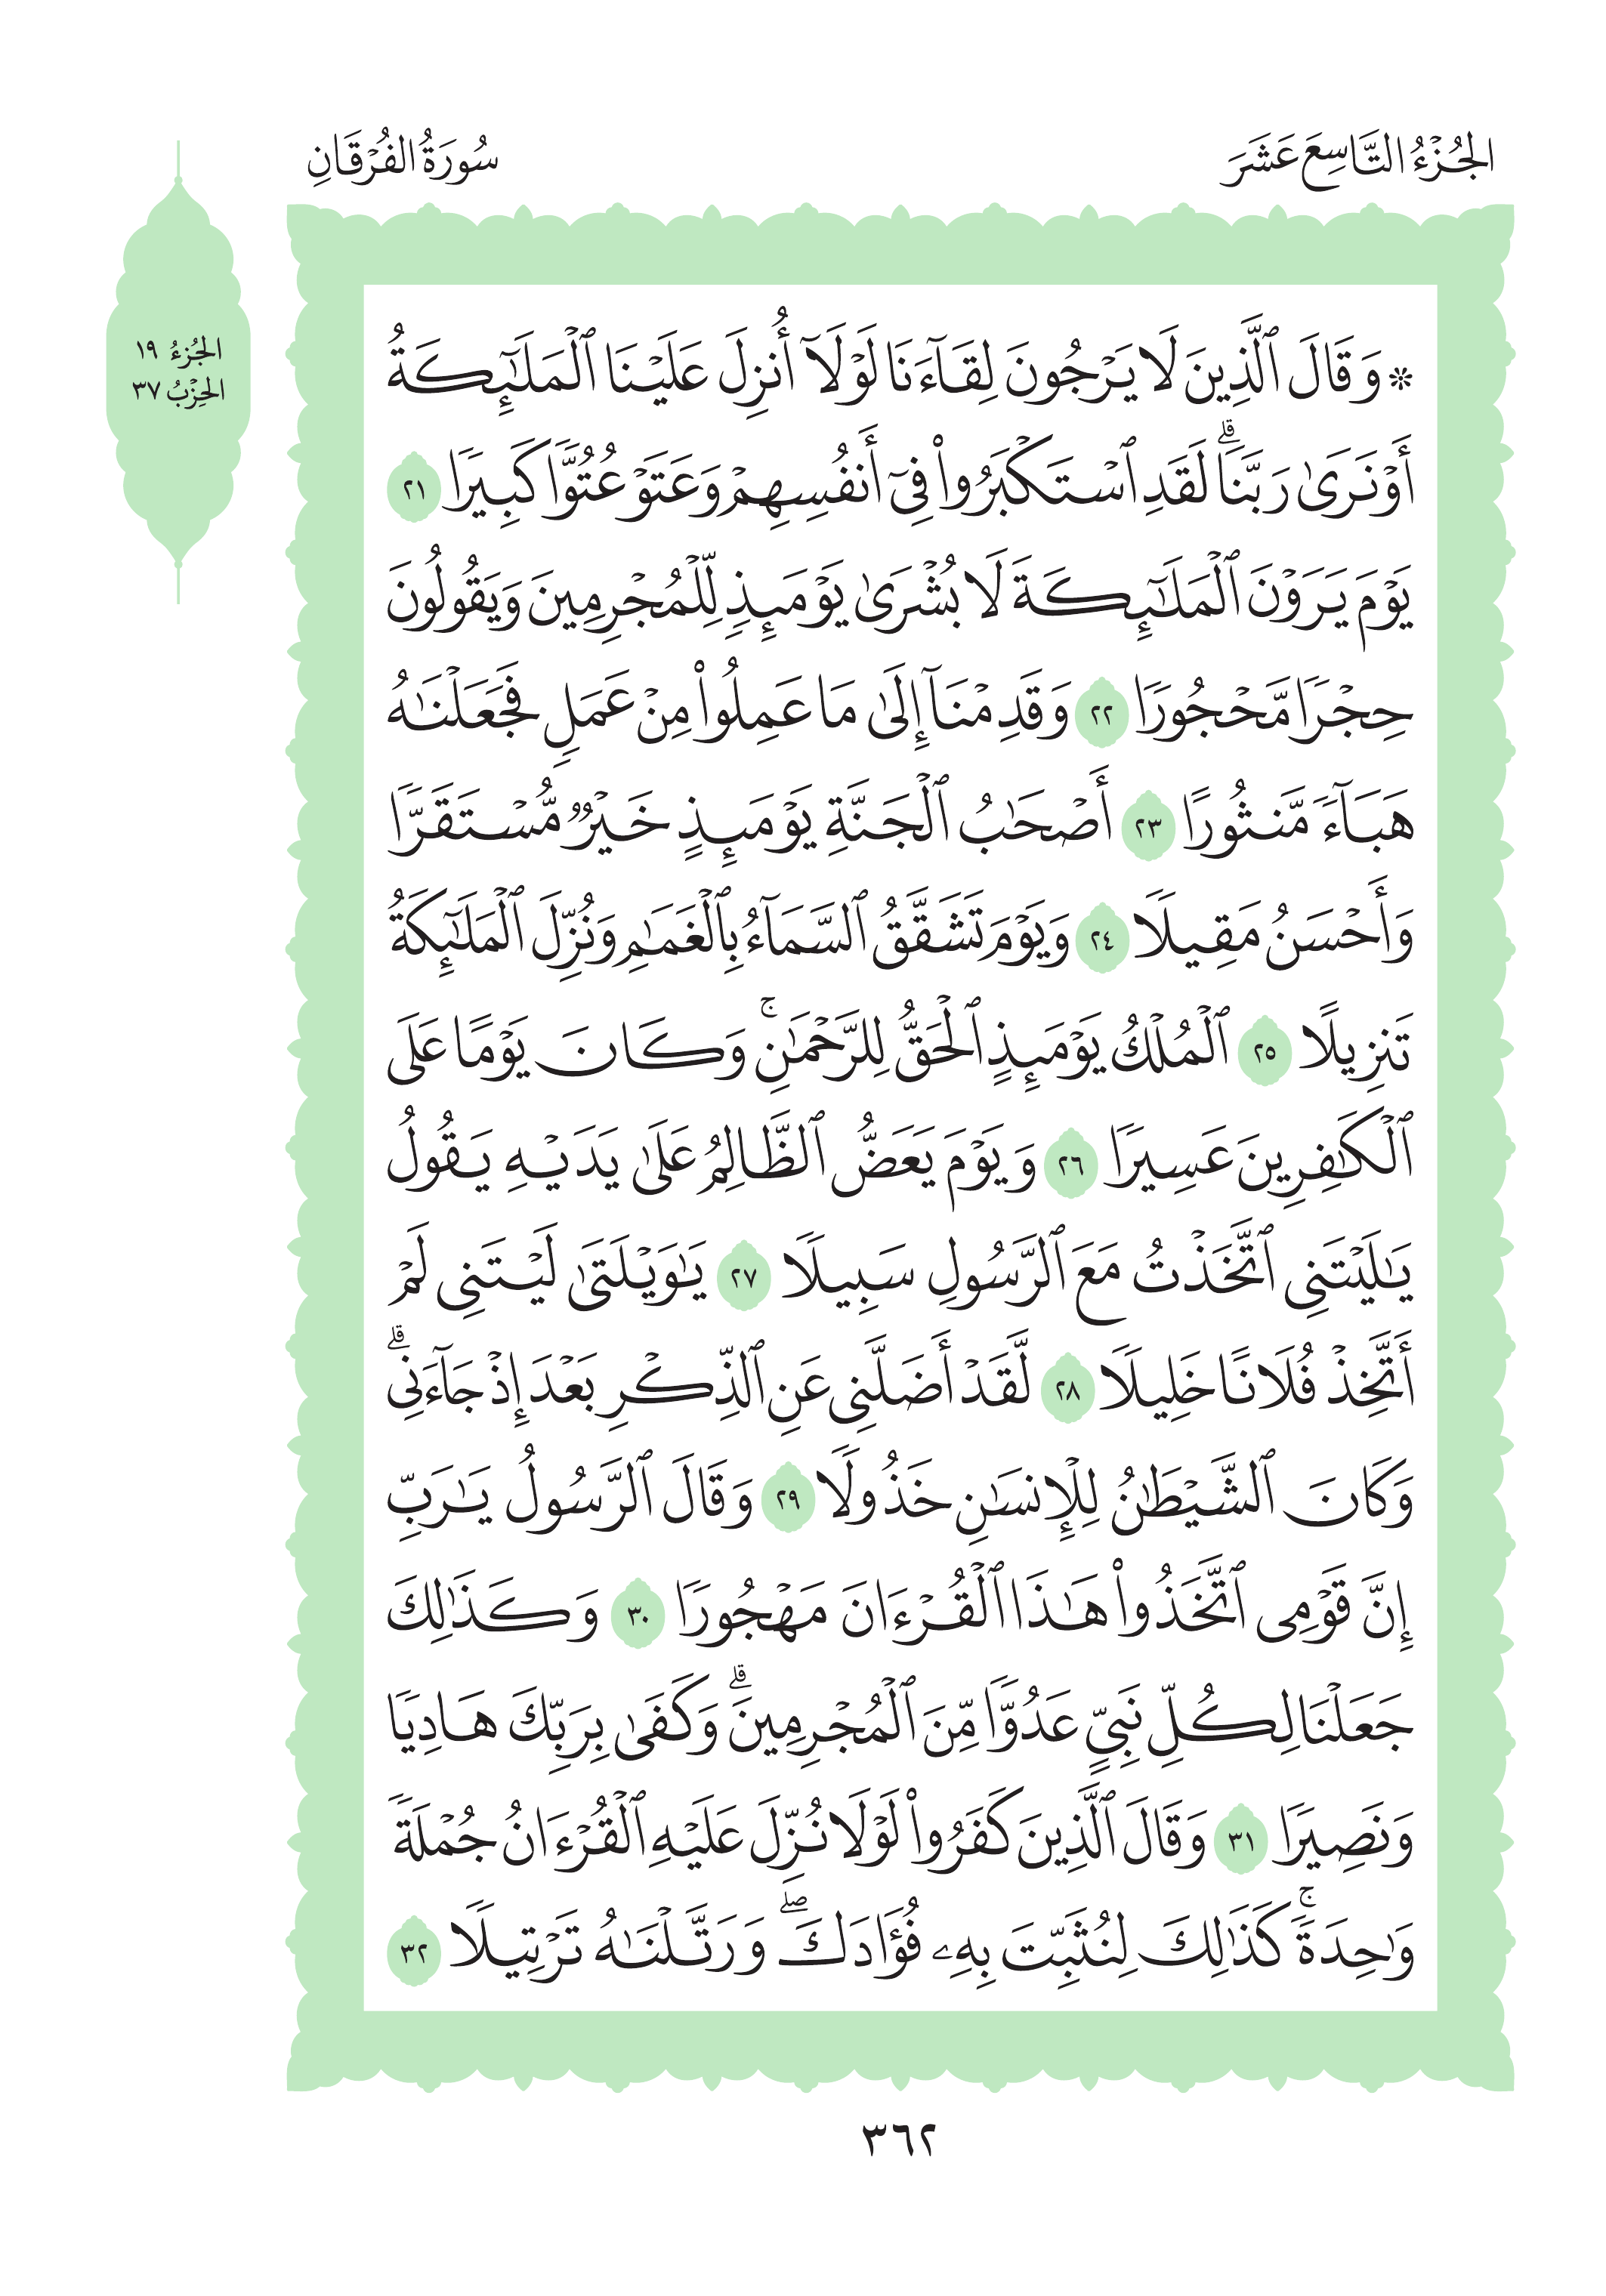 الجُزْءُ التَّاسِعَ عَشَرَ
سُورَةُ الفُرْقَانِ
الجُزءُ ١٩
الحِزْبُ ٣٧
۞ وَقَالَ ٱلَّذِينَ لَا يَرْجُونَ لِقَآءَنَا لَوْلَآ أُنزِلَ عَلَيْنَا ٱلْمَلَٰٓئِكَةُ
أَوْ نَرَىٰ رَبَّنَاۗ لَقَدِ ٱسْتَكْبَرُوا۟ فِىٓ أَنفُسِهِمْ وَعَتَوْ عُتُوًّا كَبِيرًا ٢١
يَوْمَ يَرَوْنَ ٱلْمَلَٰٓئِكَةَ لَا بُشْرَىٰ يَوْمَئِذٍ لِّلْمُجْرِمِينَ وَيَقُولُونَ
حِجْرًا مَّحْجُورًا ٢٢ وَقَدِمْنَآ إِلَىٰ مَا عَمِلُوا۟ مِنْ عَمَلٍ فَجَعَلْنَٰهُ
هَبَآءً مَّنثُورًا ٢٣ أَصْحَٰبُ ٱلْجَنَّةِ يَوْمَئِذٍ خَيْرٌ مُّسْتَقَرًّا
وَأَحْسَنُ مَقِيلًا ٢٤ وَيَوْمَ تَشَقَّقُ ٱلسَّمَآءُ بِٱلْغَمَٰمِ وَنُزِّلَ ٱلْمَلَٰٓئِكَةُ
تَنزِيلًا ٢٥ ٱلْمُلْكُ يَوْمَئِذٍ ٱلْحَقُّ لِلرَّحْمَٰنِۚ وَكَانَ يَوْمًا عَلَى
ٱلْكَٰفِرِينَ عَسِيرًا ٢٦ وَيَوْمَ يَعَضُّ ٱلظَّالِمُ عَلَىٰ يَدَيْهِ يَقُولُ
يَٰلَيْتَنِى ٱتَّخَذْتُ مَعَ ٱلرَّسُولِ سَبِيلًا ٢٧ يَٰوَيْلَتَىٰ لَيْتَنِى لَمْ
أَتَّخِذْ فُلَانًا خَلِيلًا ٢٨ لَّقَدْ أَضَلَّنِى عَنِ ٱلذِّكْرِ بَعْدَ إِذْ جَآءَنِىۗ
وَكَانَ ٱلشَّيْطَٰنُ لِلْإِنسَٰنِ خَذُولًا ٢٩ وَقَالَ ٱلرَّسُولُ يَٰرَبِّ
إِنَّ قَوْمِى ٱتَّخَذُوا۟ هَٰذَا ٱلْقُرْءَانَ مَهْجُورًا ٣٠ وَكَذَٰلِكَ
جَعَلْنَا لِكُلِّ نَبِىٍّ عَدُوًّا مِّنَ ٱلْمُجْرِمِينَۗ وَكَفَىٰ بِرَبِّكَ هَادِيًا
وَنَصِيرًا ٣١ وَقَالَ ٱلَّذِينَ كَفَرُوا۟ لَوْلَا نُزِّلَ عَلَيْهِ ٱلْقُرْءَانُ جُمْلَةً
وَٰحِدَةًۚ كَذَٰلِكَ لِنُثَبِّتَ بِهِۦ فُؤَادَكَۖ وَرَتَّلْنَٰهُ تَرْتِيلًا ٣٢
٣٦٢